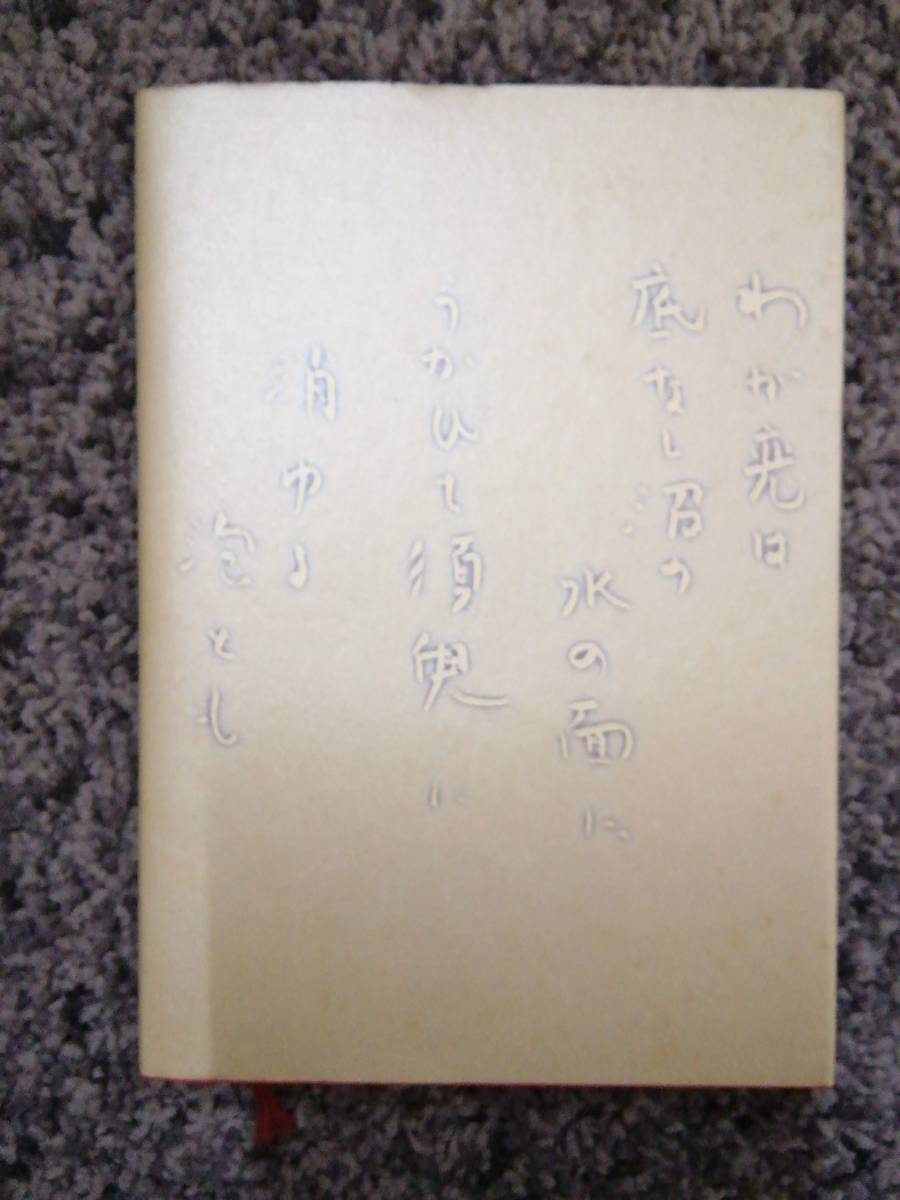 わが恋は
底なし沼の
水の面に
うかひて須臾に
消ゆる
泡とも